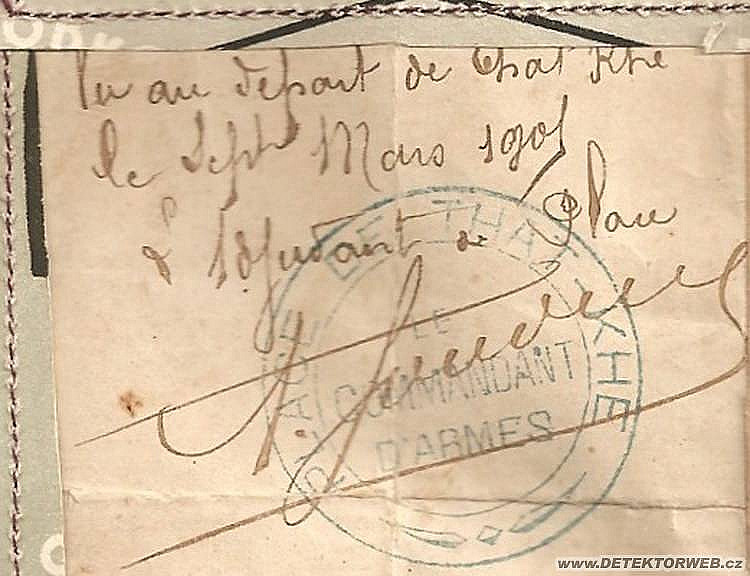 Vu au départ de That Khé
le Sept Mars 1905
L'adjudant de Place
PLACE DE THAT-KHE
LE
COMMANDANT
D'ARMES
www.DETEKTORWEB.cz